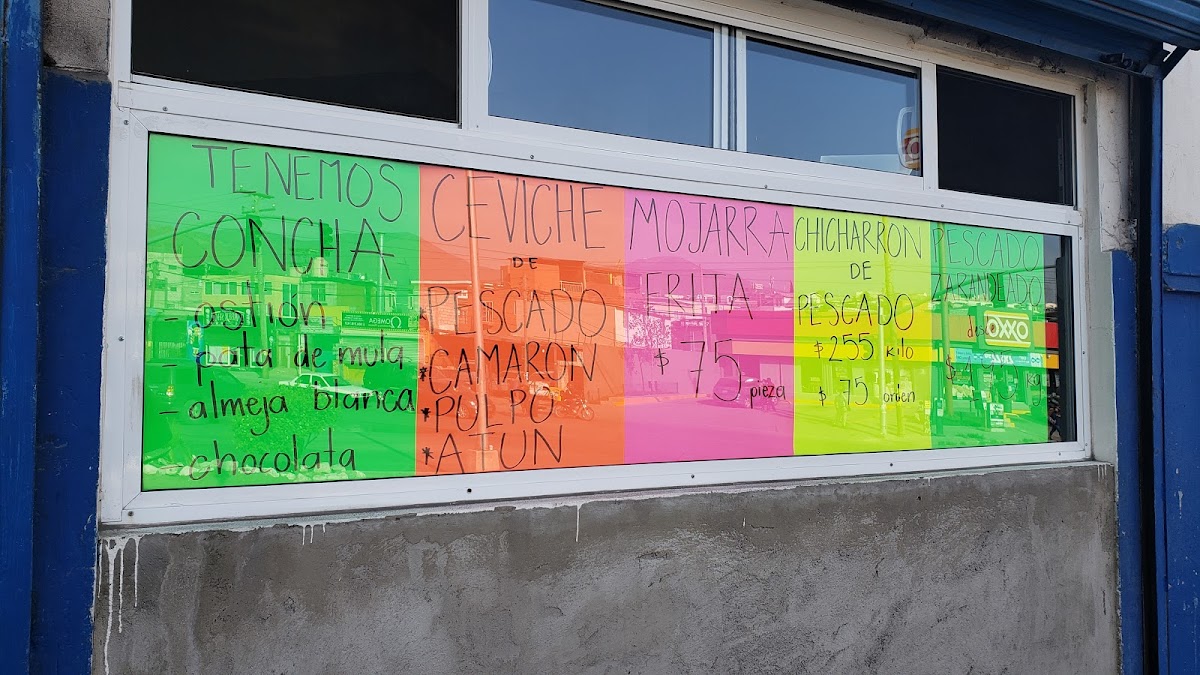 TENEMOS
CONCHA
- ostión
- pata de mula
- almeja blanca
- chocolata
CEVICHE
DE
PESCADO
* CAMARON
* PULPO
* ATUN
MOJARRA
FRITA
$ 75 pieza
CHICHARRON
DE
PESCADO
$ 255 kilo
$ 75 orden
PESCADO
ZARANDEADO
desde
OXXO
OMEGA